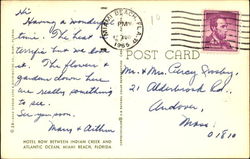 Hi
Having a wonderful
time. The heat
terrific but we love
it. The flowers &
gardens down here
are really something
to see.
See you soon.
Mary & Arthur
HOTEL ROW BETWEEN INDIAN CREEK AND
ATLANTIC OCEAN, MIAMI BEACH, FLORIDA
MIAMI BEACH, FLA.
PM
1965
POST CARD
Mr. & Mrs.
21 Alderbrook Rd.,
Andover,
Mass.
01810